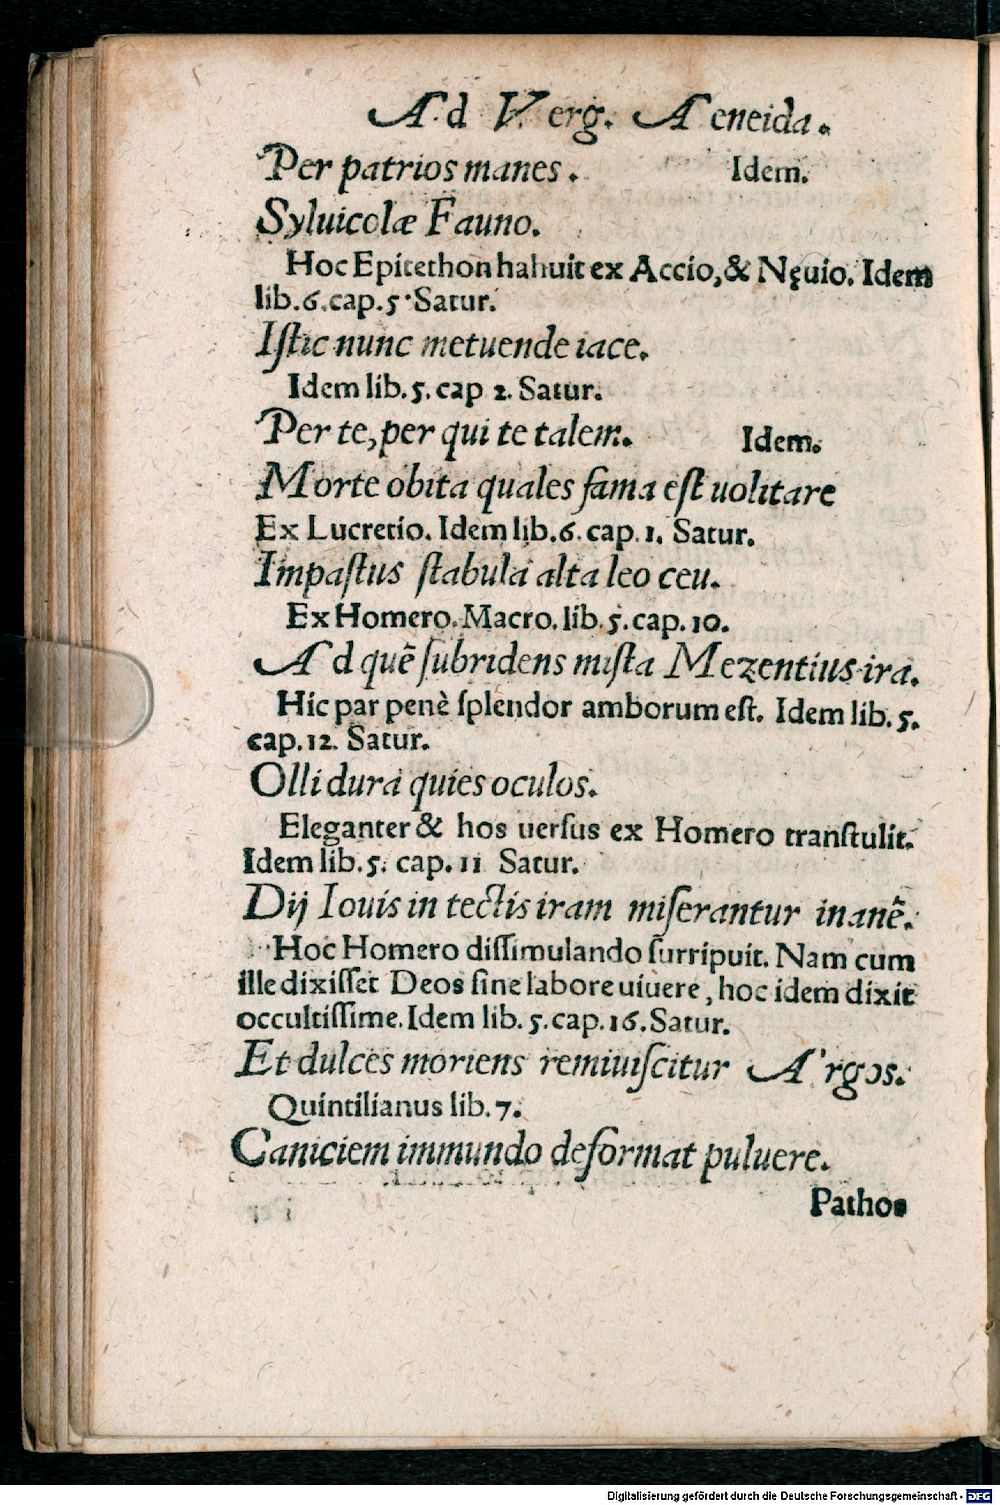 Ad Verg. Aeneida.
Per patrios manes. Idem.
Syluicolæ Fauno.
Hoc Epitethon habuit ex Accio, & Nęuio. Idem
lib.6.cap.5.Satur.
Iſtic nunc metuende iace.
Idem lib.5.cap 2. Satur.
Per te, per qui te talem. Idem.
Morte obita quales fama eſt uolitare
Ex Lucretio. Idem lib.6.cap.1. Satur.
Impaſtus ſtabula alta leo ceu.
Ex Homero. Macro. lib.5.cap.10.
Ad quē ſubridens miſta Mezentius ira.
Hic par penè ſplendor amborum eſt. Idem lib.5.
cap.12. Satur.
Olli dura quies oculos.
Eleganter & hos uerſus ex Homero tranſtulit.
Idem lib.5. cap.11 Satur.
Dij Iouis in tectis iram miſerantur inanē.
Hoc Homero diſſimulando ſurripuit. Nam cum
ille dixiſſet Deos ſine labore uiuere, hoc idem dixit
occultiſſime. Idem lib.5.cap.16.Satur.
Et dulces moriens remiuiſcitur Argos.
Quintilianus lib.7.
Caniciem immundo deformat puluere.
Pathos
Digitalisierung gefördert durch die Deutsche Forschungsgemeinschaft - DFG